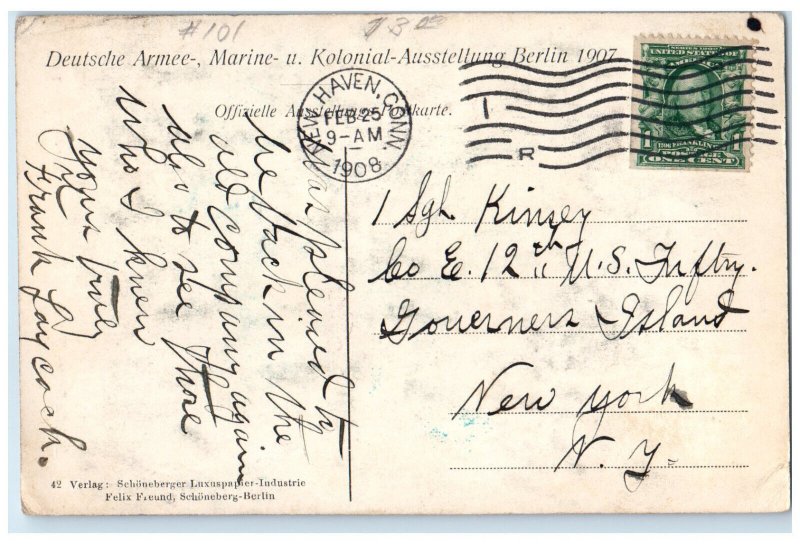 #101
Deutsche Armee-, Marine- u. Kolonial-Ausstellung Berlin 1907
Offizielle Ausstellungs-Postkarte.
NEW HAVEN, CONN.
FEB 25
9-AM
1908
I
R
SERIES 1902
UNITED STATES OF
AMERICA
1706 FRANKLIN 1790
1 POSTAGE 1
ONE CENT
1 Sgt. Kinsey
Co E. 12th U.S. Inftry.
Governers Island
New York
N. Y.
Was pleased to
be back in the
old company again
also to see those
who I knew
yours truly
Frank Laycock.
42 Verlag: Schöneberger Luxuspapier-Industrie
Felix Freund, Schöneberg-Berlin